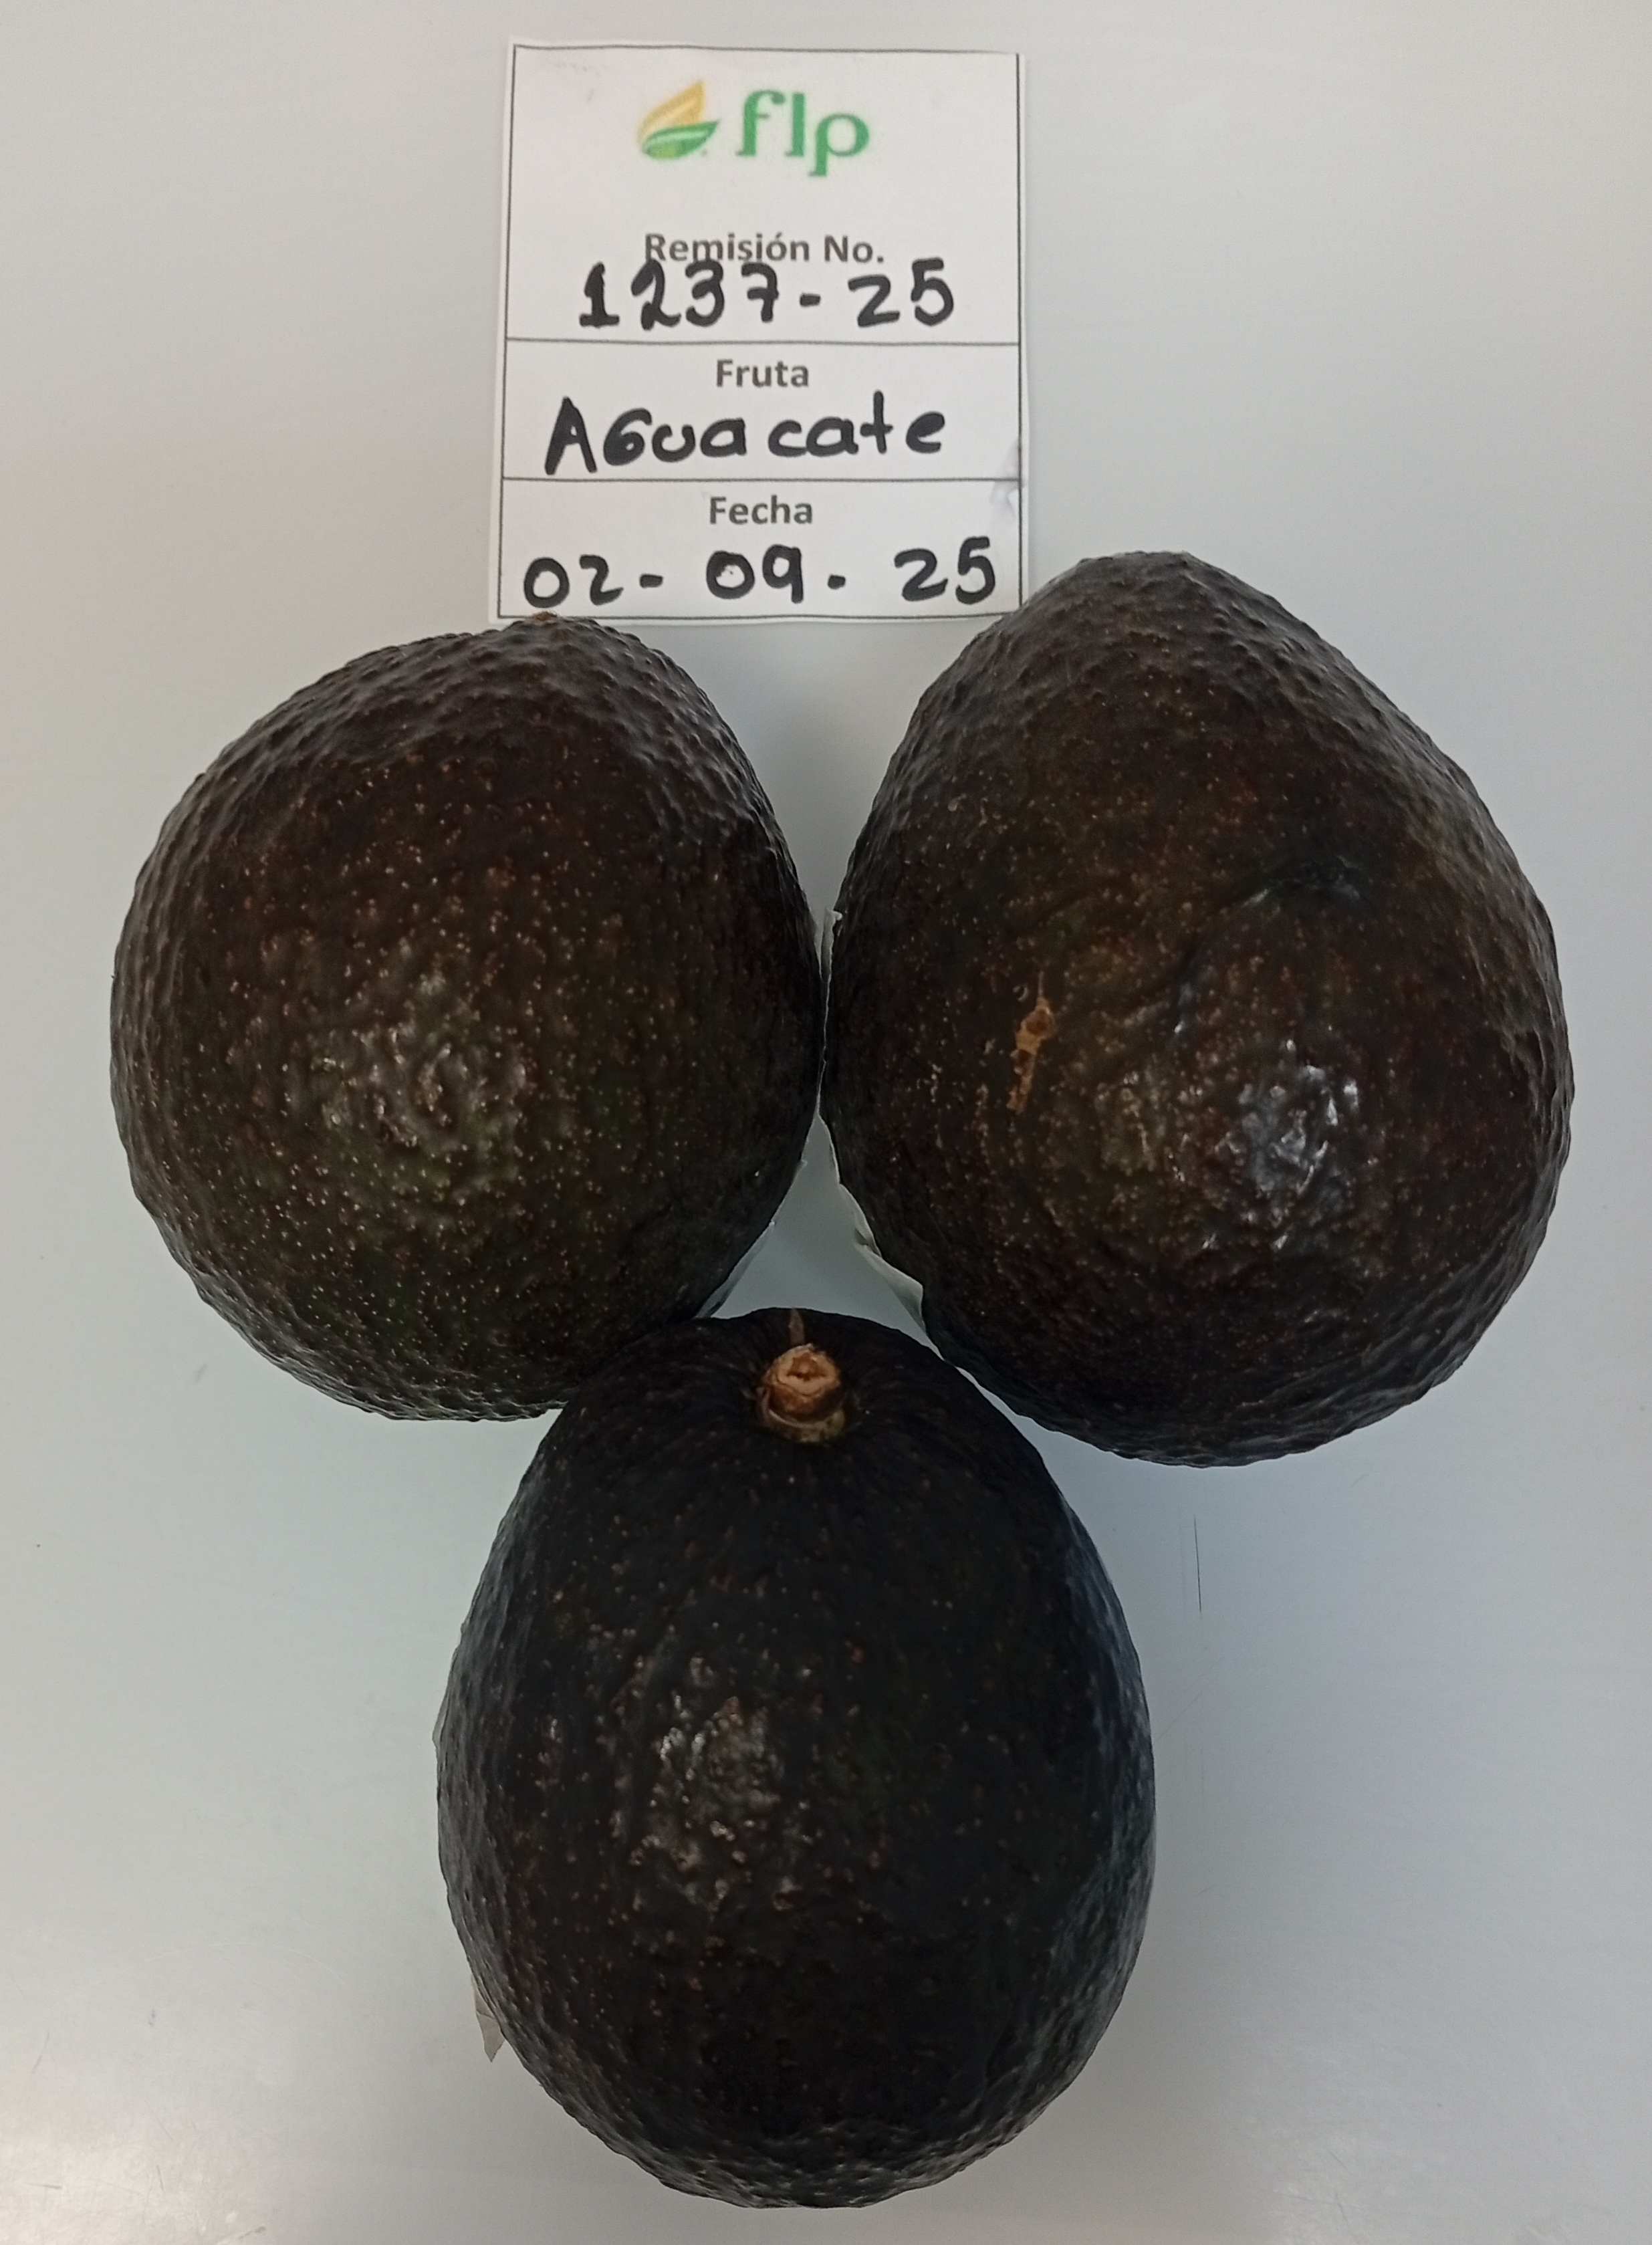 flp
Remisión No.
1237-25
Fruta
AGuacate
Fecha
02-09-25